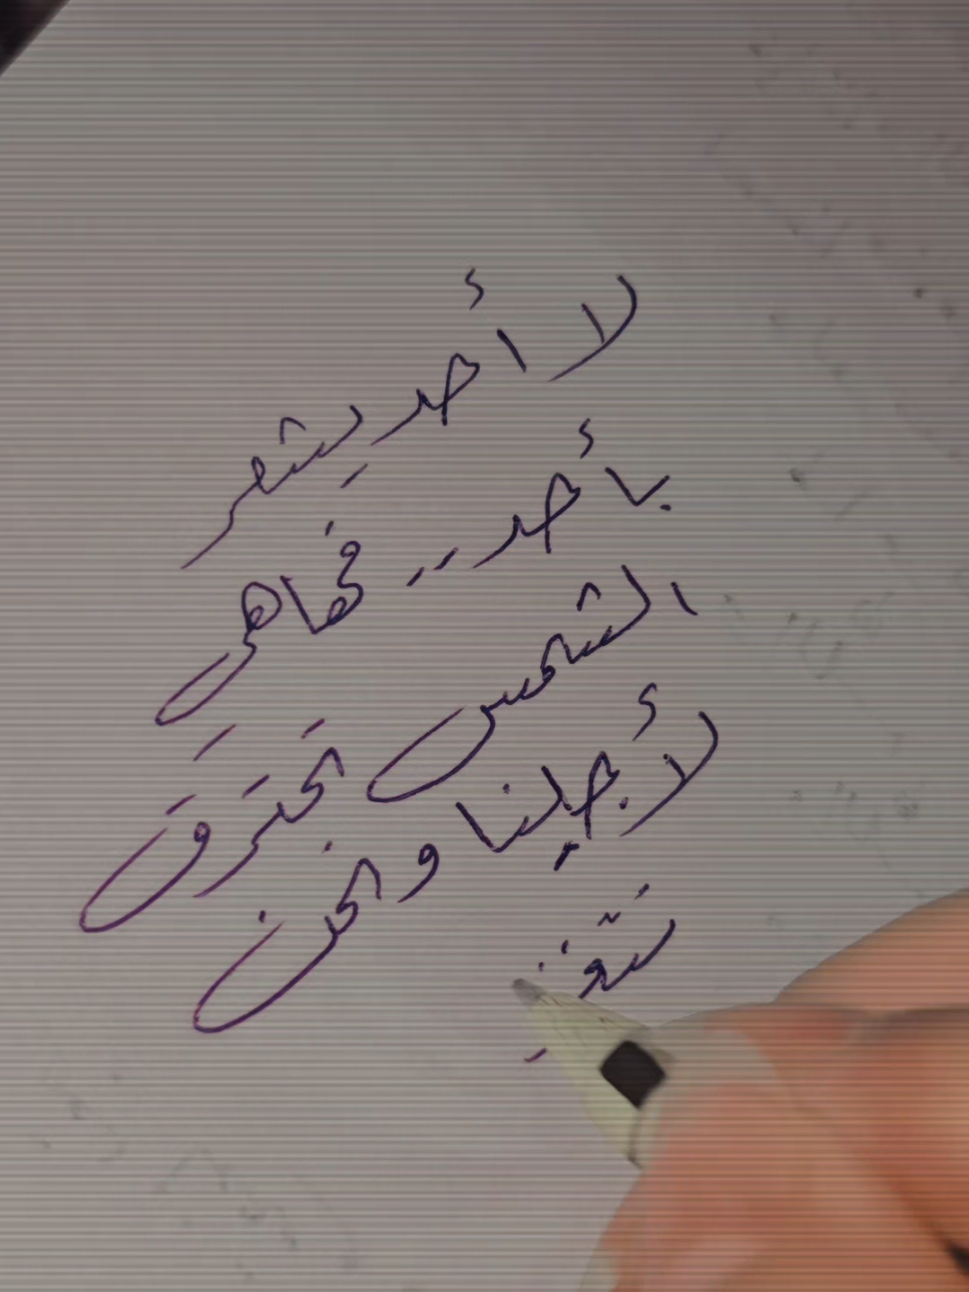 لا أحد يشعر
بأحد .. فها هي
الشمس تحترق
لأجلنا ونحن